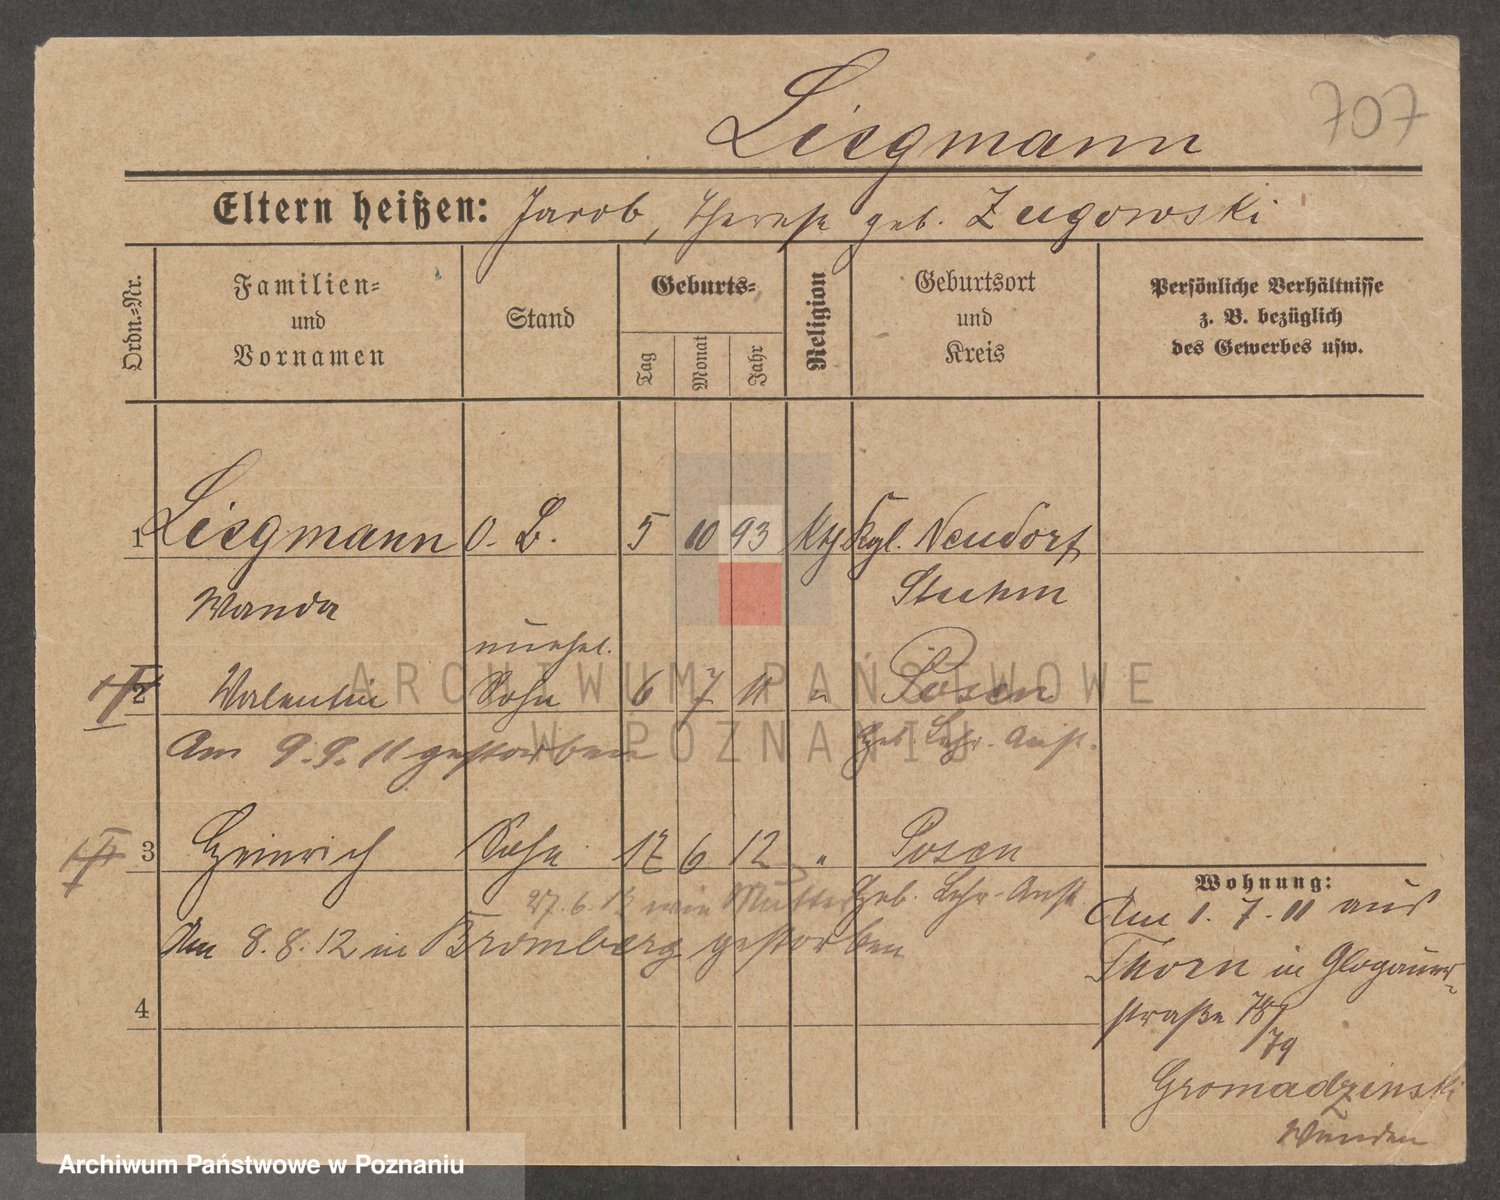 707
Liegmann
Eltern heißen: Jacob, Therese geb. Zugowski
Ordn.-Nr.
Familien-
und
Vornamen
Stand
Geburts-
Tag
Monat
Jahr
Religion
Geburtsort
und
Kreis
Persönliche Verhältnisse
z. B. bezüglich
des Gewerbes usw.
1 Liegmann O. B. 5 10 93 kth Kgl. Neudorf
Wanda Stuhm
unehel.
2 Valentin Sohn 6 7 11 " Posen
Am 9.9.11 gestorben Heb. Lehr-Anst.
3 Heinrich Sohn 17 6 12 " Posen
27.6.12 wie Mutter Heb. Lehr-Anst
Am 8.8.12 in Bromberg gestorben
4
Wohnung:
Am 1.7.11 aus
Thorn in Glogauer-
straße 78/
79
Gromadzinski
ARCHIWUM PAŃSTWOWE
W POZNANIU
Archiwum Państwowe w Poznaniu